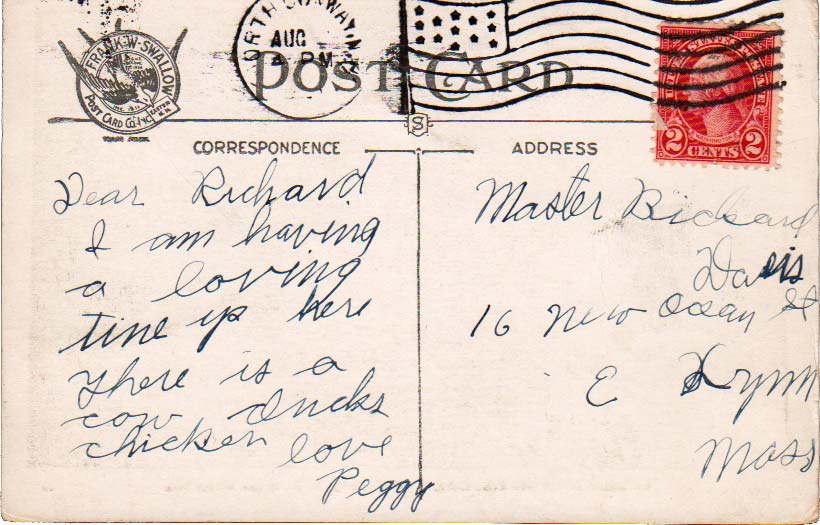 FRANK·W·SWALLOW
POST CARD CO. INC.
EXETER
N.H.
NORTH CONWAY, N.H.
AUG
PM
POST CARD
2 CENTS 2
WASHINGTON
S
CORRESPONDENCE
ADDRESS
Dear Richard
I am having
a loving
tine up here
There is a
cow ducks
chicken love
Peggy
Master Richard
Davis
16 New Ocean St
E Lynn
Mass